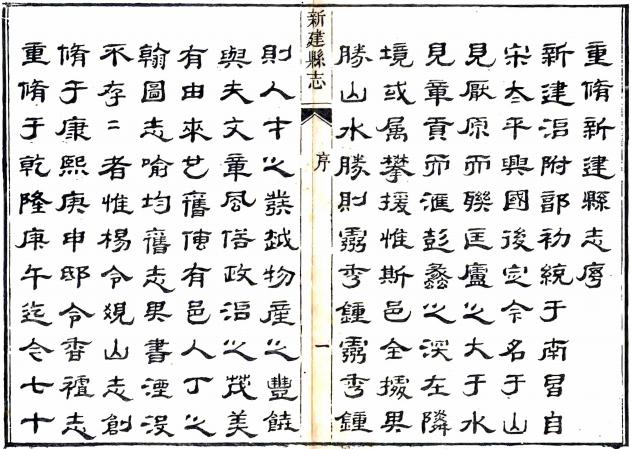 重脩新建縣志序
新建治附郭初統于南昌自
宋太平興國後定今名于山
見厭原而聯匡廬之大于水
見章貢而滙彭蠡之深左隣
境或属攀援惟斯邑全其
勝山水勝則靈秀鍾靈秀鍾
新建縣志
序
一
則人才之發越物產之豐饒
與夫文章風俗政治之茂美
有由來已舊傳有邑人丁之
翰圖志喻均舊志其書湮沒
不存二者惟楊令山志創
脩于康熙庚申邸令香志
重脩于乾隆庚午迄今七十